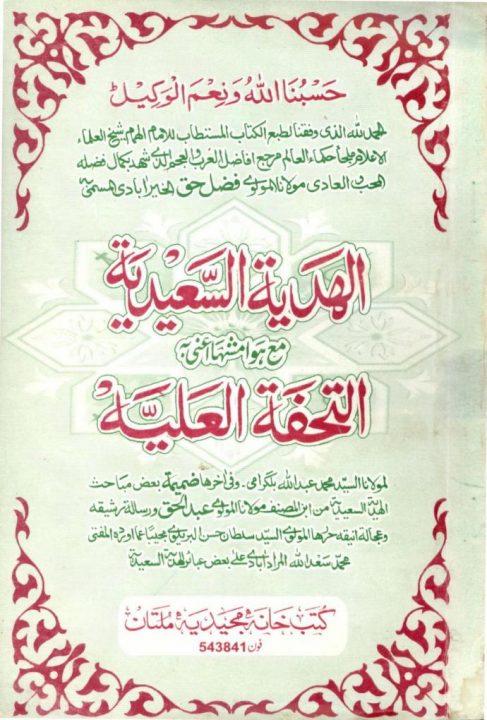 حسبنا الله ونعم الوكيل
الحمد لله الذي وفقنا لطبع الكتاب المستطاب للامام الهمام شيخ العلماء
الاعلام ملجأ حكماء العالم مرجع افاضل العرب والعجم الذي شهد بكمال فضله
المحب والعادي مولانا المولوي فضل حق الخيرابادي المسمى به
الهدية السعيدية
مع هوامشها اعنى به
التحفة العلية
لمولانا السيد محمد عبدالله بلكرامى۔ وفى اخرها ضميمة بعض مباحث
الهدية السعيدية من ابن المصنف مولانا المولوي عبدالحق ورسالة رشيقه
وعجالة انيقه حررها المولوي السيد سلطان حسن البريلوي مجيبا عما اورده المفتى
محمد سعد الله المرادابادي على بعض عبائر الهدية السعيدية
کتب خانہ مجیدیہ ملتان
فون 543841